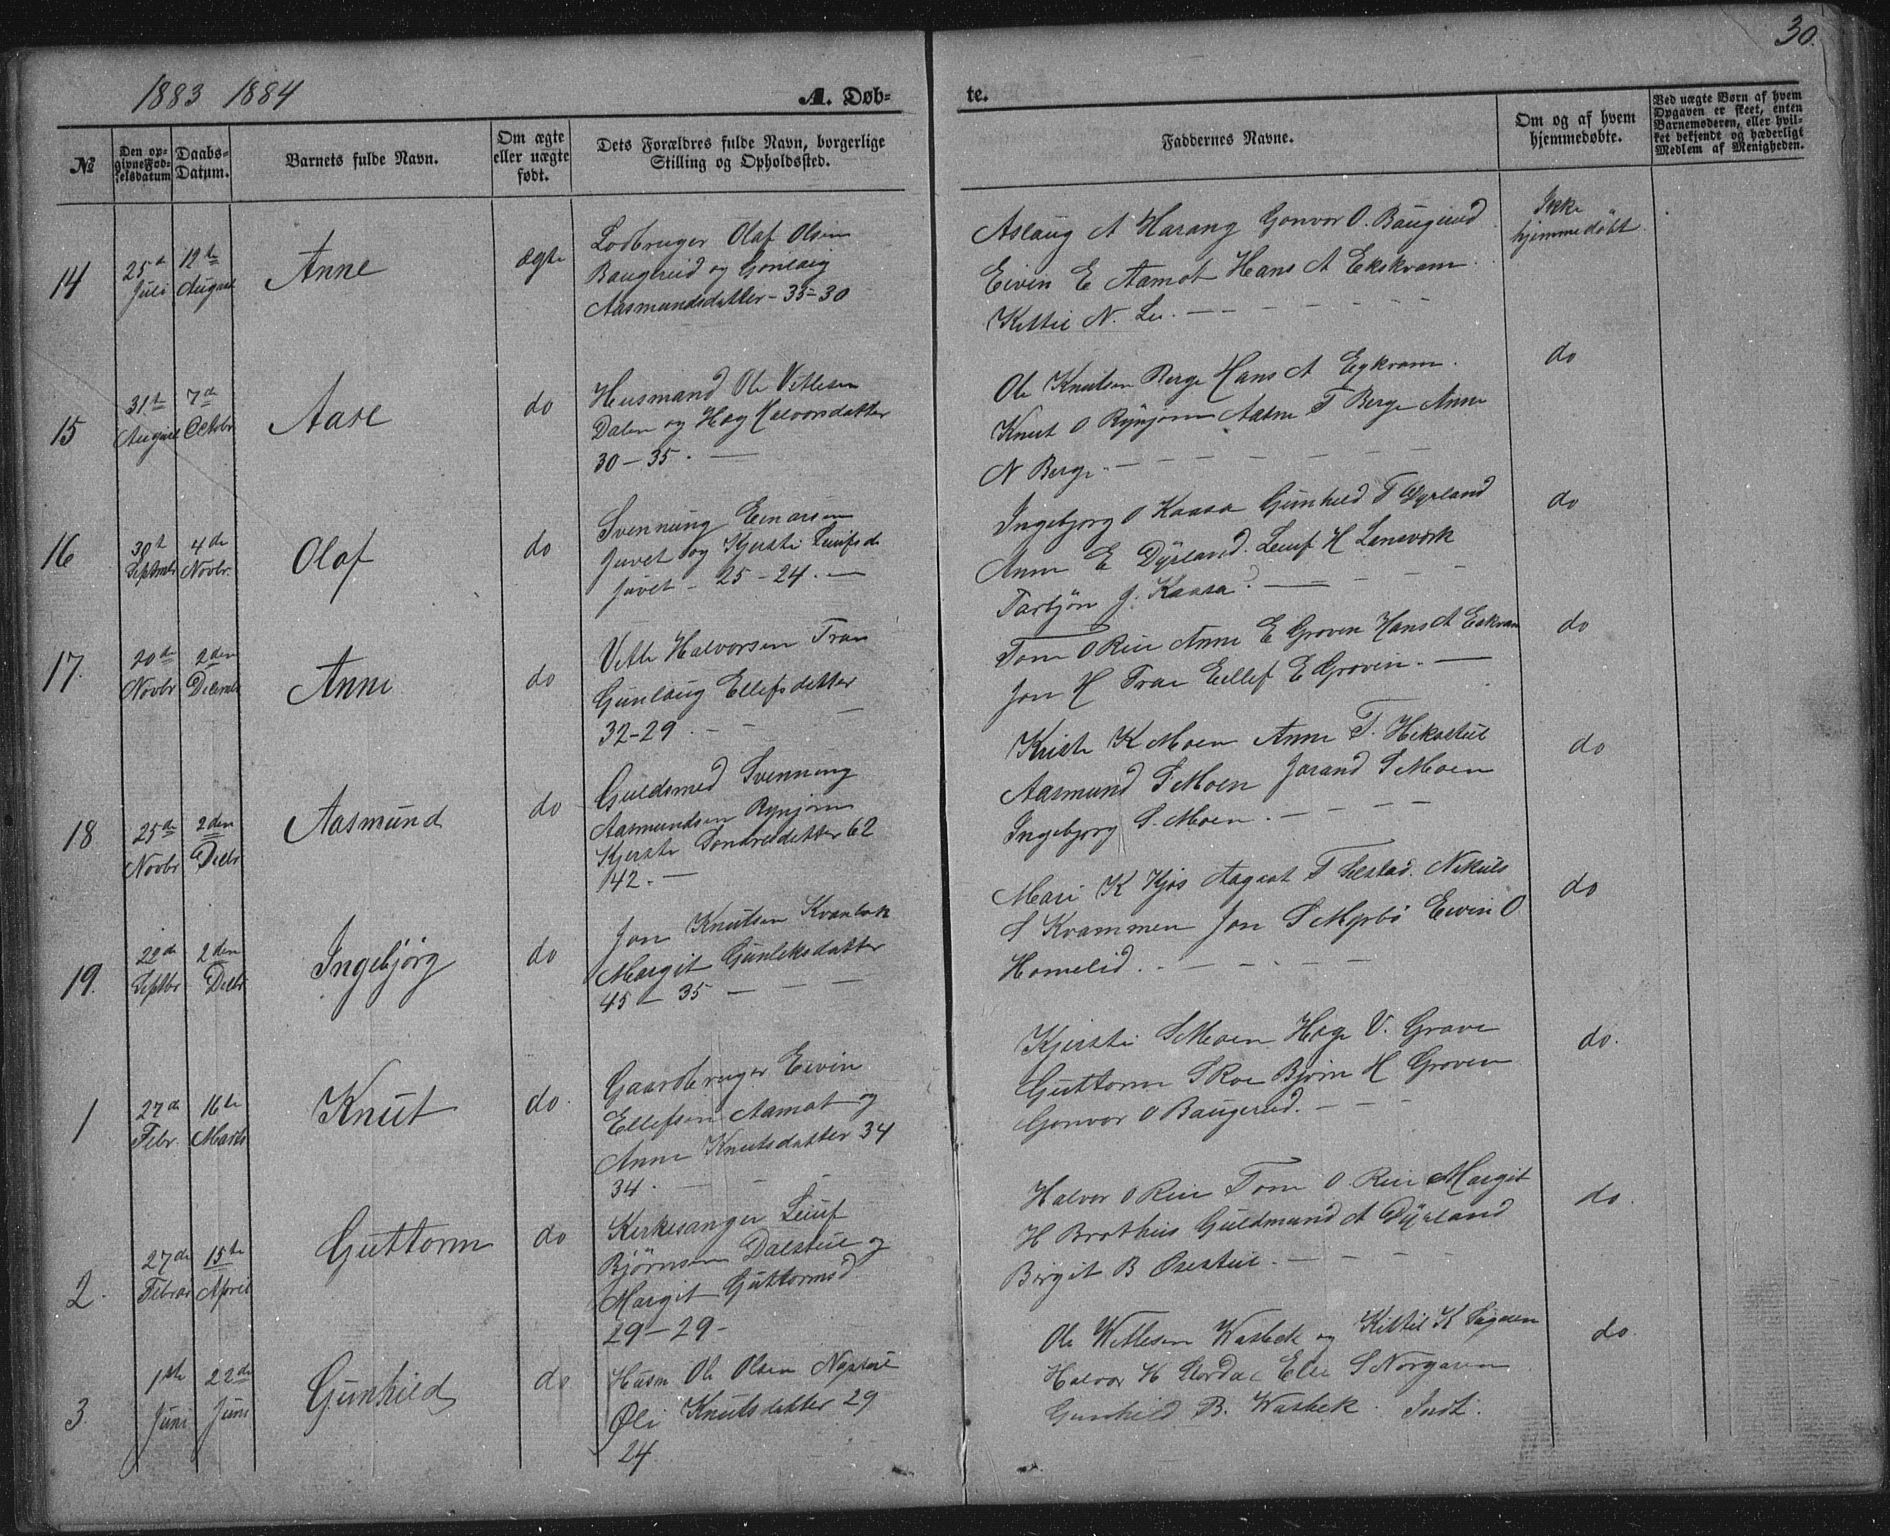 30.
1883 1884
A. Døb-
te.
№
Den op-
givne Fød-
selsdatum
Daabs-
Datum.
Barnets fulde Navn.
Om ægte
eller uægte
født.
Dets Forældres fulde Navn, borgerlige
Stilling og Opholdssted.
Faddernes Navne.
Om og af hvem
hjemmedøbte.
Ved uægte Børn af hvem
Opgaven er skeet, enten
Barnemoderen, eller hvil-
ket bekjendt og hæderligt
Medlem af Menigheden.
14
25d
Juli
12te
August
Anne
ægte
Lodbruger Olaf Olsen
Baugerud og Gonlaug
Aasmundsdatter - 35-30
Aslaug A Harang Gonvor O. Baugerud
Eiven E Aamot Hans A Ekskvam
Kittil N. Lu.
Ikke
hjemmedøbt
15
31te
August
7d
Octobr
Aase
do
Husmand Ole Vetlesen
Dalen og Hæg Halvorsdatter
30 - 35.
Ole Knutsen Berge Hans A Egkvam.
Knut O Rynjom Aasne T Berge Anne
N Berge
do
16
30te
Septembr
4de
Novbr.
Olaf
do
Svennung Einarsen
Juvet og Kjersti Leufsd.
Juvet - 25 - 24.
Ingebjørg O Kaasa Gunhild T Dyrland
Anne E Dyrland. Leuf H
Tarbjøn J. Kaasa.
do
17.
20de
Novbr
2den
Decmbr
Anne
do
Vetle Halvorsen Traa
Gunlaug Ellefsdatter
32-29.
Tom O Rui Anne E Groven Hans A Eskvam
Jon H Traa Ellef E Groven.
do
18
25de
Novbr
2den
Decbr
Aasmund
do
Guldsmed Svennung
Aasmundsen Rynjom
Kjersti Sondresdatter 62
142.
Kristi K Moen Anne T.
Aasmund S Moen Jorand S Moen
Ingebjørg S. Moen.
do
19.
29de
Septbr
2den
Decbr
Ingebjörg
do
Jon Knutsen Kvanbæk
Margit Gunleksdatter
45 - 35
Mari K Kjos Aagaat T Nikuls
S Kvammen Jon S Myrbö Eivin O
Homelid.
do
1
27de
Febr.
16te
Marts
Knut
do.
Gaardbruger Eivin
Ellefsen Aamot og
Anne Knutsdatter 34
34.
Kjersti S Moen Hæge V. Grave
Guttorm S Roe Bjørn H Groven
Gonvor O Baugerud.
do.
2.
27de
Febrar
15te
April
Guttorm
do
Kirkesanger Leuf
Bjørnsen Dalestul og
Margit Guttormsd
29-29-
Halvor O Rui Tom O. Rui Margit
H Brathus Guldmund A Dyrland
Birgit B
do.
3.
1ste
Juni
22de
Juni
Gunhild
do
Husm Ole Olsen Nystul
Øli Knutsdatter 29
24.
Ole Wetlesen Wasbek og Kittil K
Halvor H Elie S Norgaren
Gunhild B. Wasbek.
do.